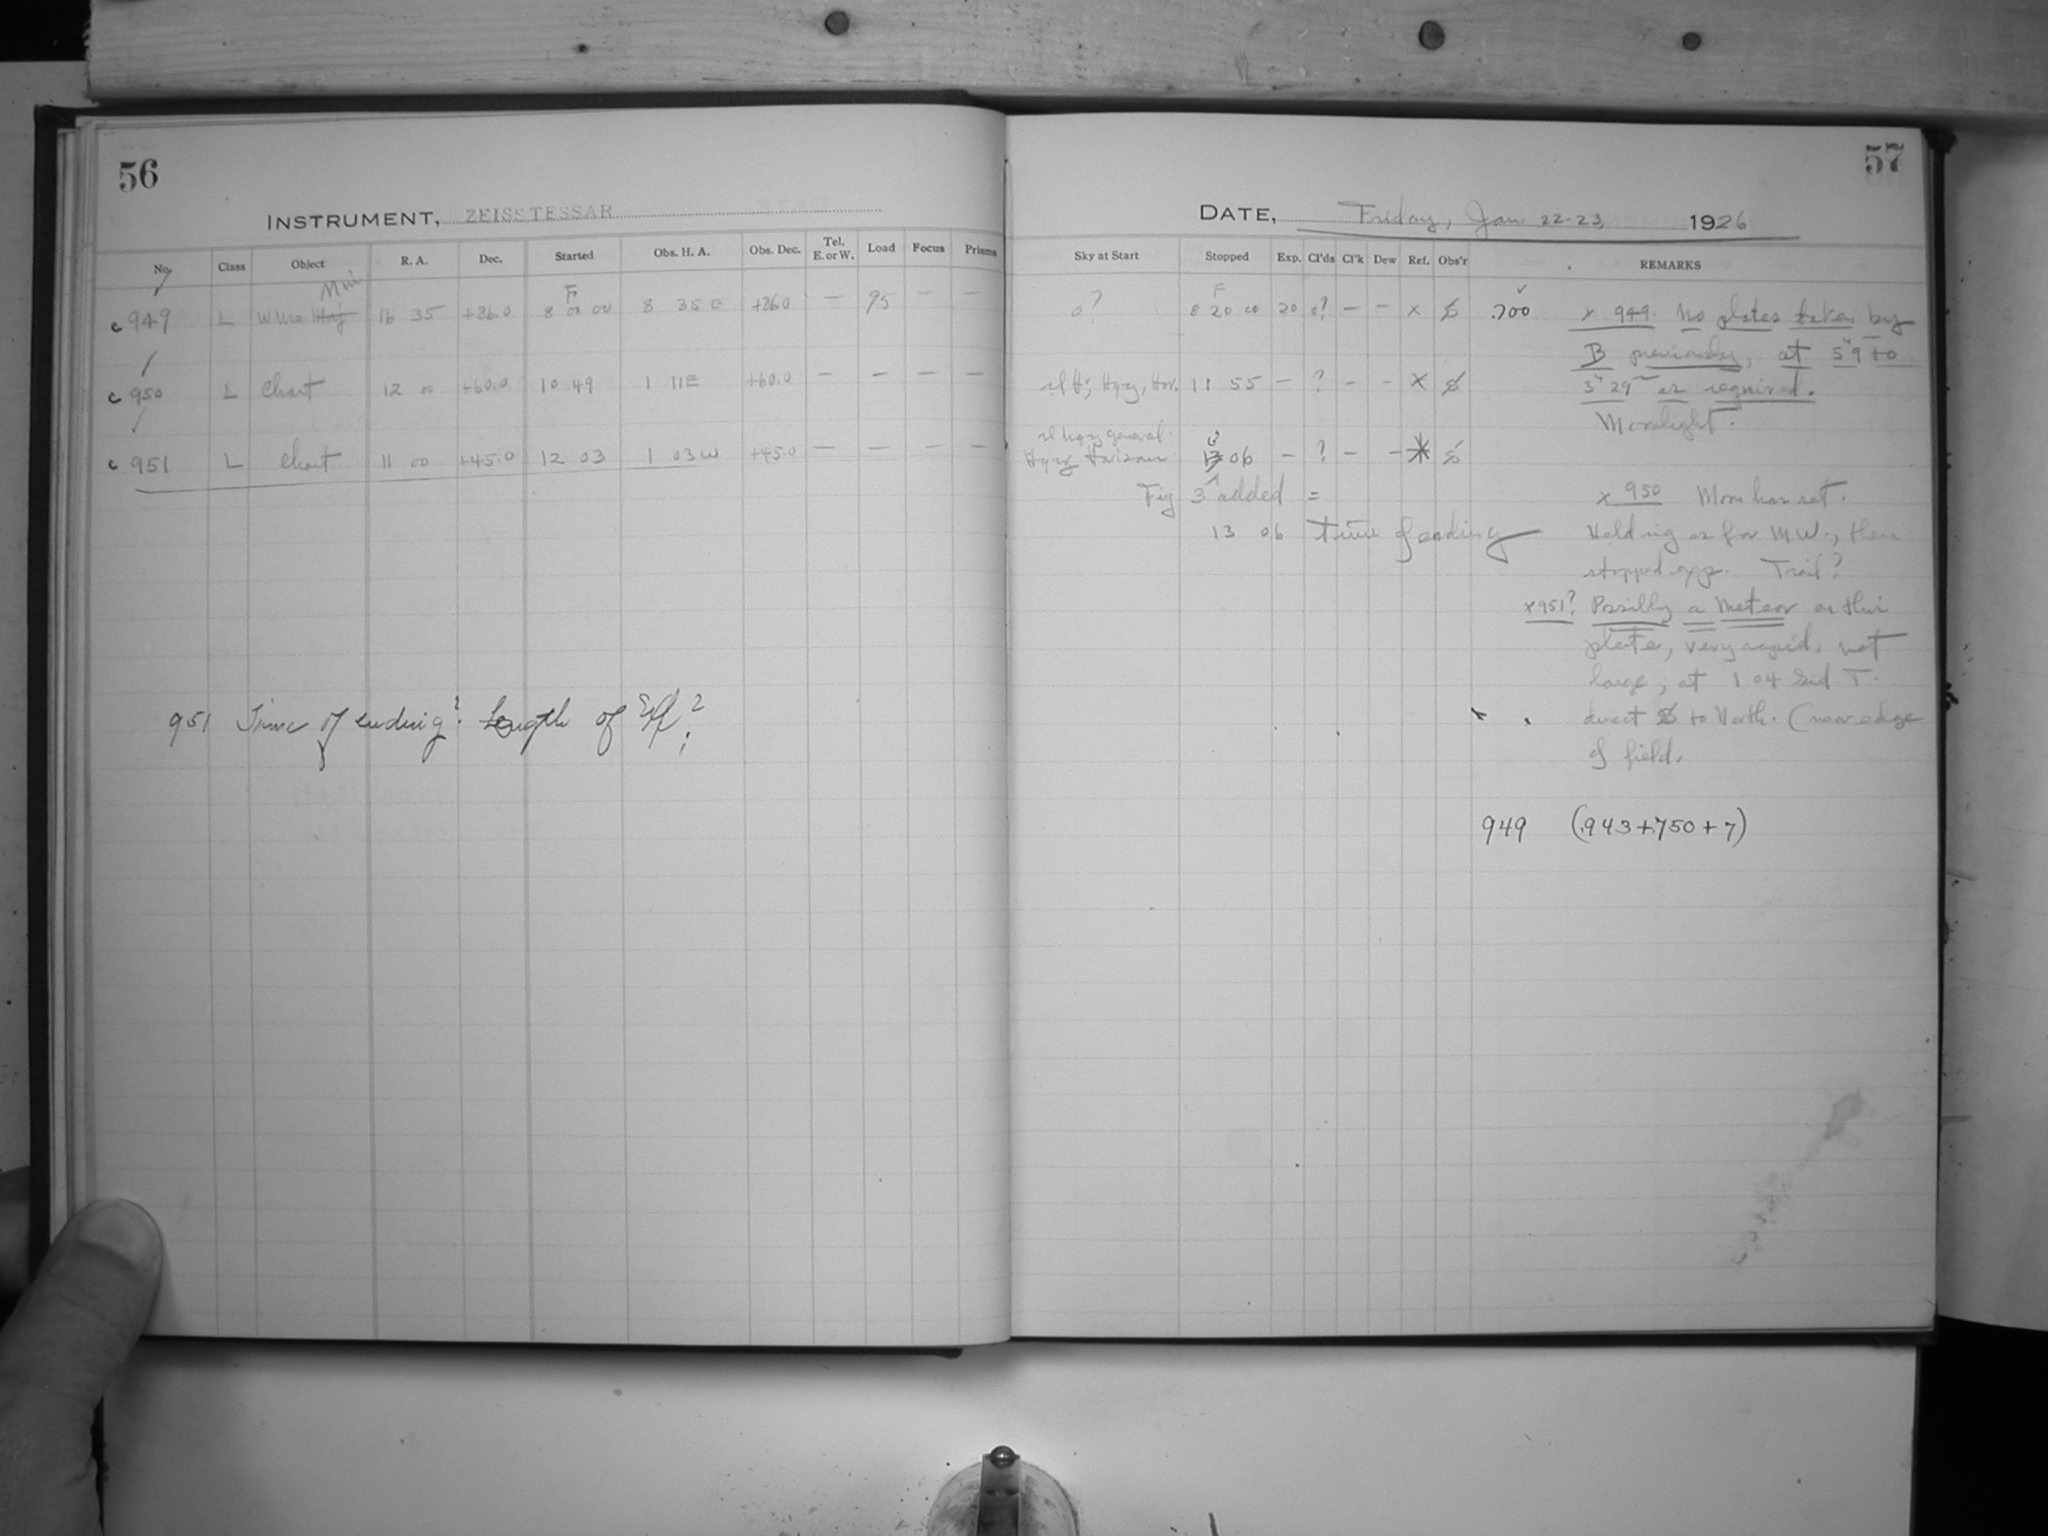 56
INSTRUMENT, ZEISS TESSAR
No. Class Object R. A. Dec. Started Obs. H. A. Obs. Dec. Tel. E. or W. Load Focus Prisms
F
c 949 L 16 35 +26.0 8 00 00 8 35 E +26.0 — 95 — —
c 950 L Chart 12 00 +60.0 10 49 1 11 E +60.0 — — — —
c 951 L Chart 11 00 +45.0 12 03 1 03 W +45.0 — — — —
951 Time of ending? Length of ?
57
DATE, Friday, Jan 22-23, 1926
Sky at Start Stopped Exp. Cl'ds Cl'k Dew Ref. Obs'r REMARKS
F
0? 8 20 00 20 0? — — x .700 x 949. No plates taken by
B previously, at 5h 9 to
Hzy, Hor. 11 55 — ? — — x 5h 29m as required.
Moonlight.
Hzy general
Hzy Horizon 06 — ? — —
Fig 3 added = x 950 Moon has set.
13 06 time of ending Holding as for MW., then
stopped exp. Trail?
x 951? Possilly a Meteor on this
plate, very rapid, not
large, at 1.04 Sid. T.
direct to North. (near edge
of field.
949 (.943+.750+7)